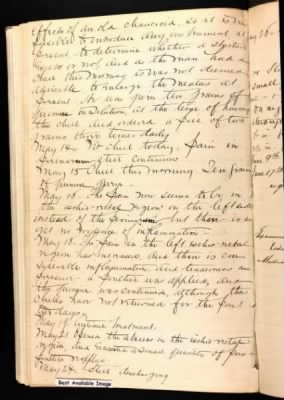 effects of an old chancroid. So as it is im
possible to introduce any instrument, at
present, to determine whether a stricture
exists or not, and as the man had a
chill this morning it was not deemed
advisable to enlarge the meatus at
present. He was given ten grains of
quinine in solution at the time of having
the chill and ordered a pill of two
grains three times daily.
May 14 No chill today. Pain in
perineum still continues
May 15 Chill this morning Ten grains
of quinine given.
May 16. The pain now seems to be in
the ischio-rectal region on the left side
instead of the perineum, but there is as
yet no evidence of inflammation
May 18. The pain in the left ischio-rectal
region has increased, and there is con
siderable inflammation and tenderness on
pressure. A poultice was applied, and
the quinine was continued, although the
chills have not returned for the past
two days.
May 19 Continue treatment.
May 21 Opened the abscess in the ischio rectal
region, and evacuated a small quantity of pus
May 24 Still discharging
Best Available Image